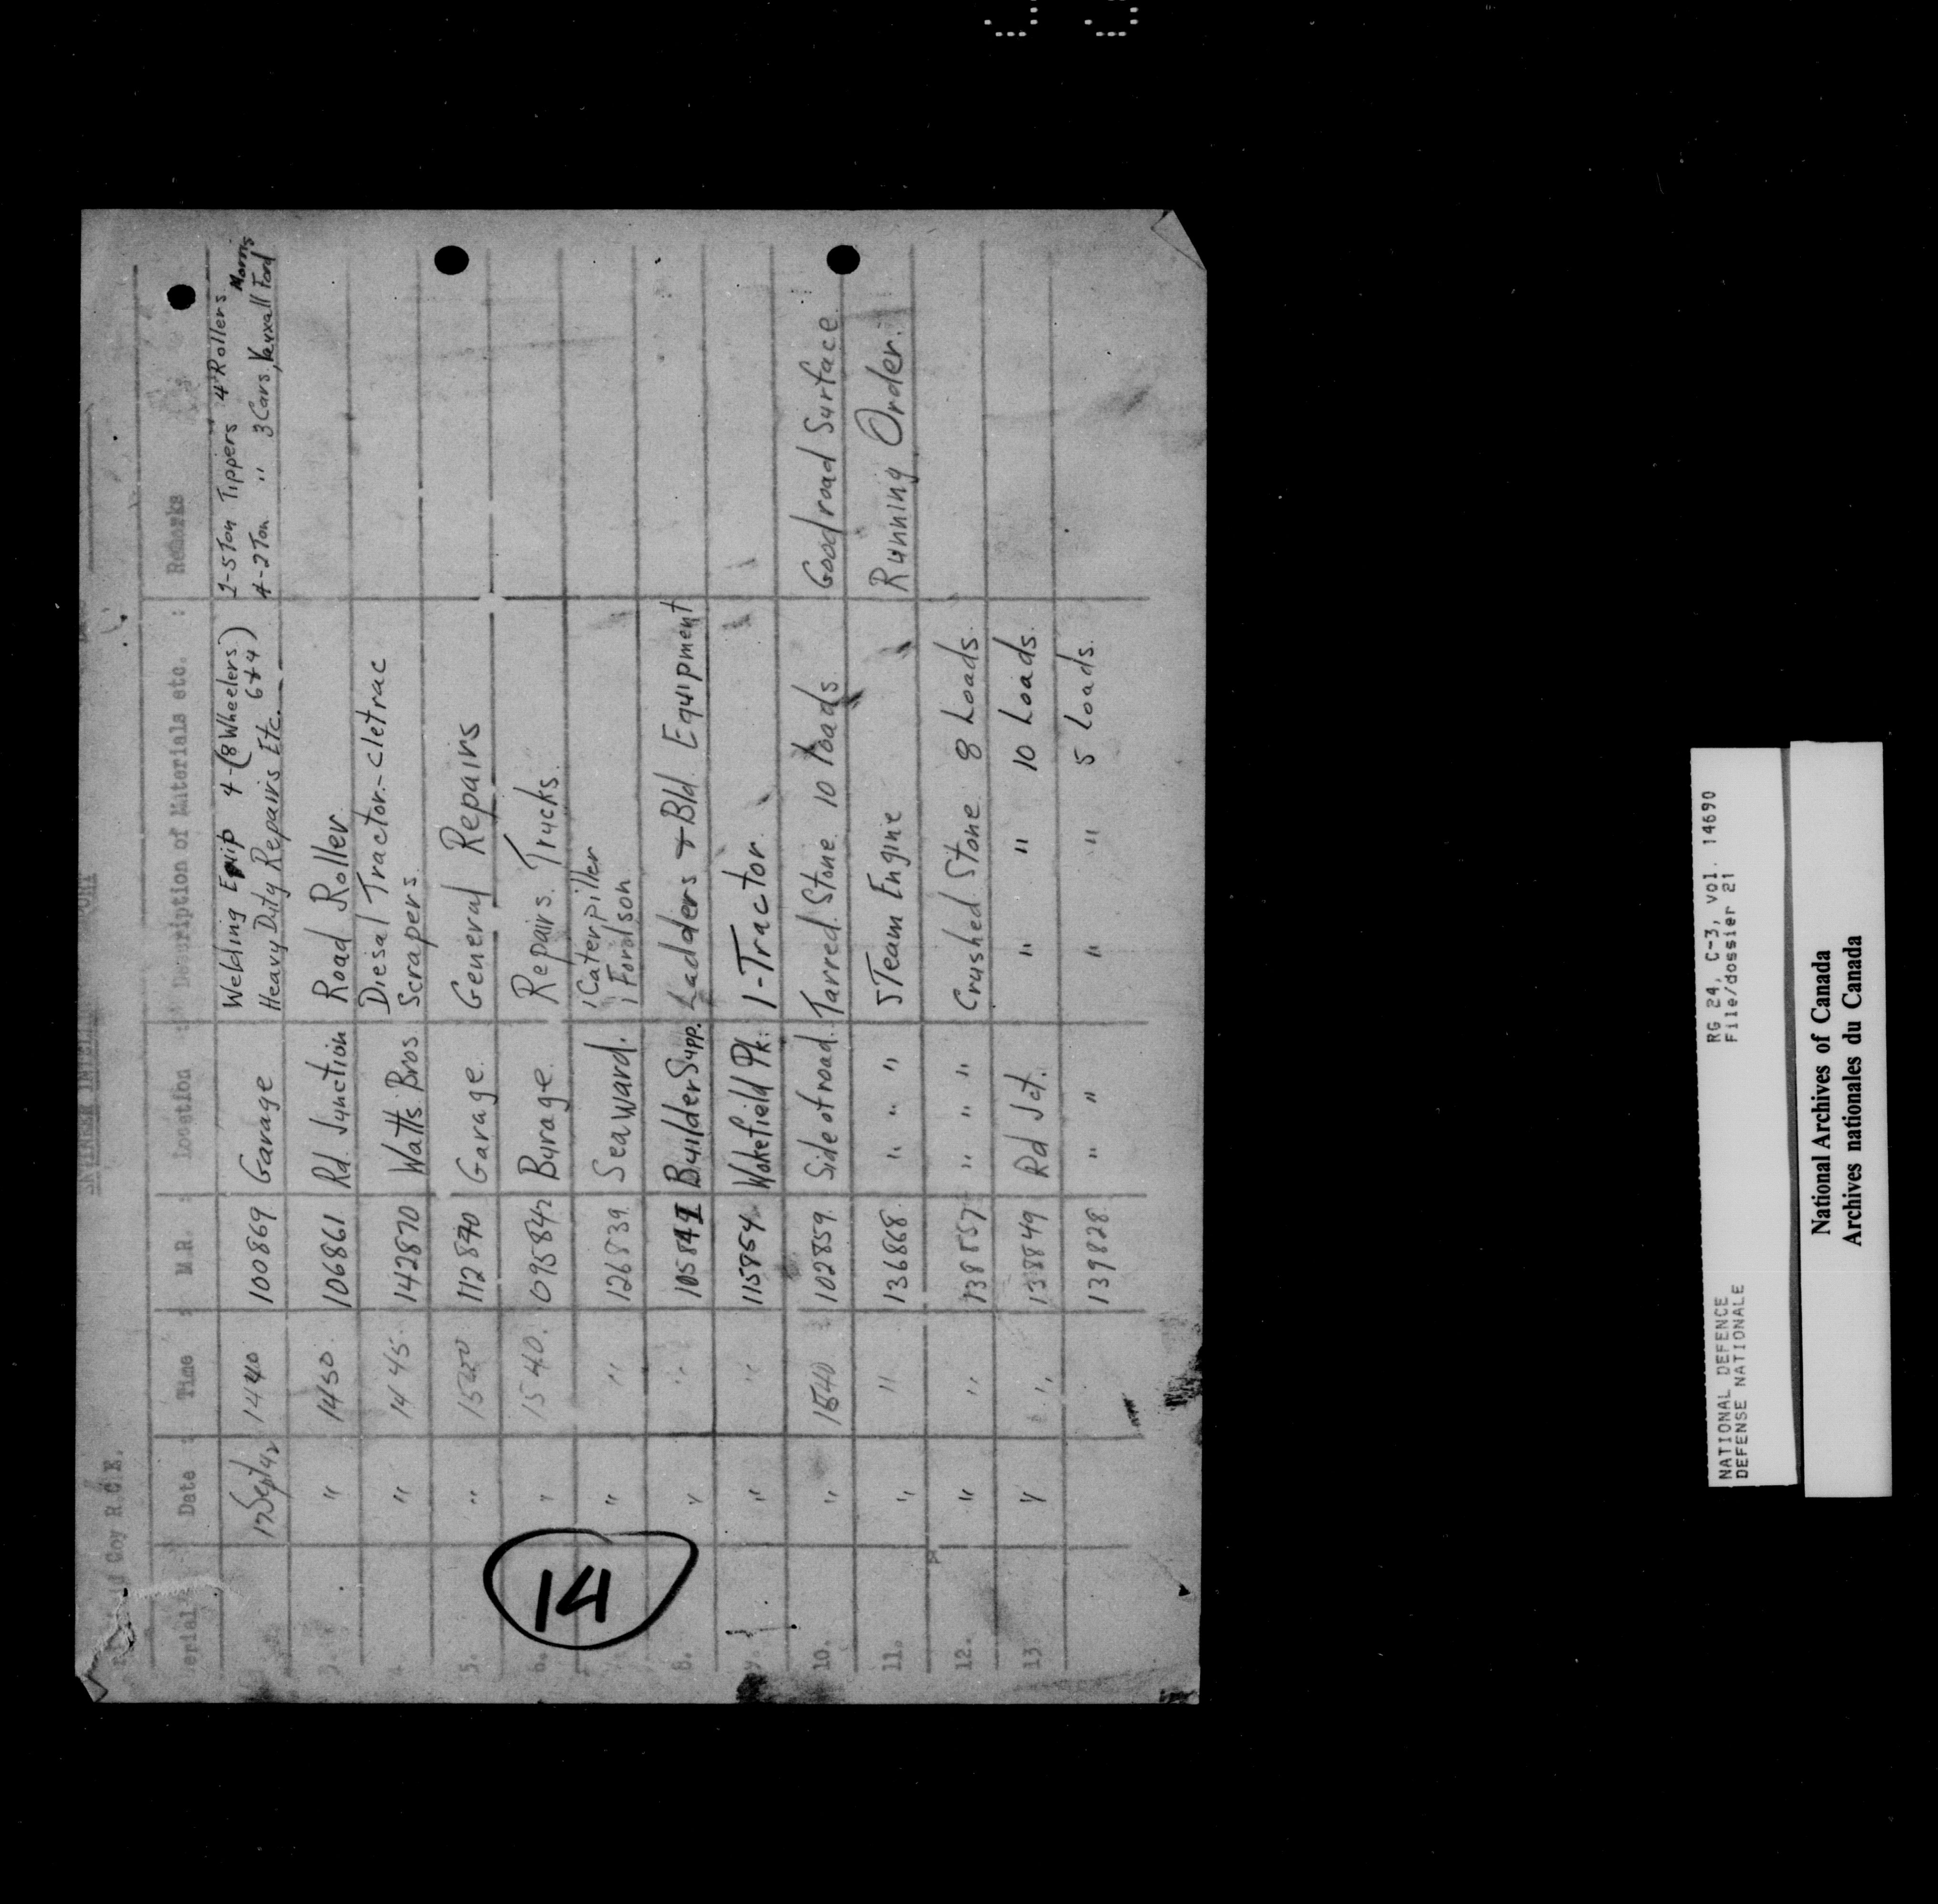 ENGINEER INTELLIGENCE REPORT
Coy R.C.E.
Serial : Date : Time : M.R. : Location : Description of Materials etc. : Remarks
17 Sept 42 1440 100869 Garage Welding Equip 4-(8 Wheelers) 2-5 Ton Tippers 4 Rollers
Heavy Duty Repairs Etc. 6+4) 4-2 Ton " 3 Cars, Vauxall Ford Morris
3. " 1450. 106861 Rd. Junction Road Roller
4. " 1445. 142870 Watts. Bros Diesal Tractor-cletrac
Scrapers.
5. " 1520 112870 Garage. General Repairs
6. " 1540. 095842 Burage. Repairs. Trucks.
7. " " 126839. Seaward. 1 Caterpiller
1 Fordson
8. " " 105841 Builder Supp. Ladders + Bld. Equipment
9. " " 115854. Wakefield Pk: 1-Tractor.
10. " 1540 102859. Side of road. Tarred. Stone. 10 loads. Good road Surface.
11. " " 136868. " " " STeam Engine Running Order.
12. " " 138857. " " " Crushed Stone. 8 Loads.
13. " " 138849 Rd Jct. " " 10 Loads.
139828. " " " " 5 Loads.
14
NATIONAL DEFENCE RG 24, C-3, vol. 14690
DEFENSE NATIONALE File/dossier 21
National Archives of Canada
Archives nationales du Canada